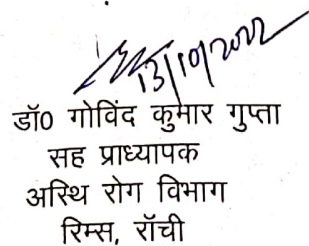 13/10/2022
डॉ0 गोविंद कुमार गुप्ता
सह प्राध्यापक
अस्थि रोग विभाग
रिम्स, राँची